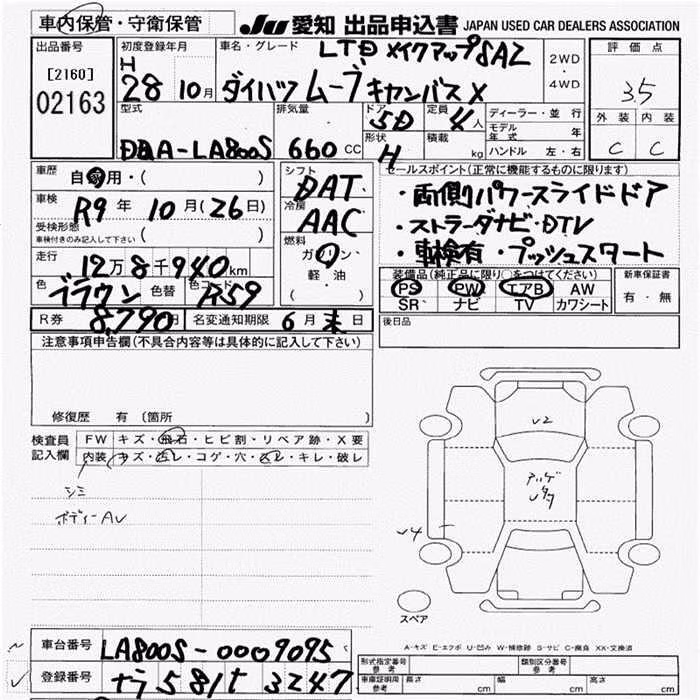 車内保管・守衛保管
JU 愛知 出品申込書 JAPAN USED CAR DEALERS ASSOCIATION
出品番号
[2160]
02163
初度登録年月
H
28 10月
車名・グレード
LTD メイクアップSA2
ダイハツ ムーブキャンバス X
2WD
・
4WD
評価点
3.5
外装 内装
C C
型式
DBA-LA800S
排気量
660 CC
ドア
5D
形状
H
定員
4人
積載
kg
ディーラー・並行
モデル年式 年
ハンドル 左・右
車歴
自家用・( )
車検
R9年 10月(26日)
受検形態
車検付きのみ記入して下さい
( )
走行
12万8千940km
色
ブラウン
色替
色コード
R59
シフト
DAT
冷房
AAC
燃料
ガソリン
軽・油
( )
セールスポイント(正常に機能するものに限ります)
・両側パワースライドドア
・ストラーダナビ・DTV
・車検有・プッシュスタート
装備品(純正品に限り○をつけてください)
PS PW エアB AW
SR ナビ TV カワシート
新車保証書
有・無
R券 8,790円
名変通知期限 6月末日
後日品
注意事項申告欄(不具合内容等は具体的に記入して下さい)
修復歴 有 〔箇所 〕
検査員
記入欄
FW キズ・飛石・ヒビ割・リペア跡・X要
内装 キズ・汚レ・コゲ・穴・スレ・キレ・破レ
シミ
ボディーAU
U2
U4
スペア
A-キズ E-エクボ U-凹み W-補修跡 S-サビ C-腐食 XX-交換済
車台番号
LA800S-0009095
登録番号
ナラ581 3247
形式指定番号
参考
類別区分番号
参考
車庫証明用
参考
長さ cm
幅 cm
高さ cm